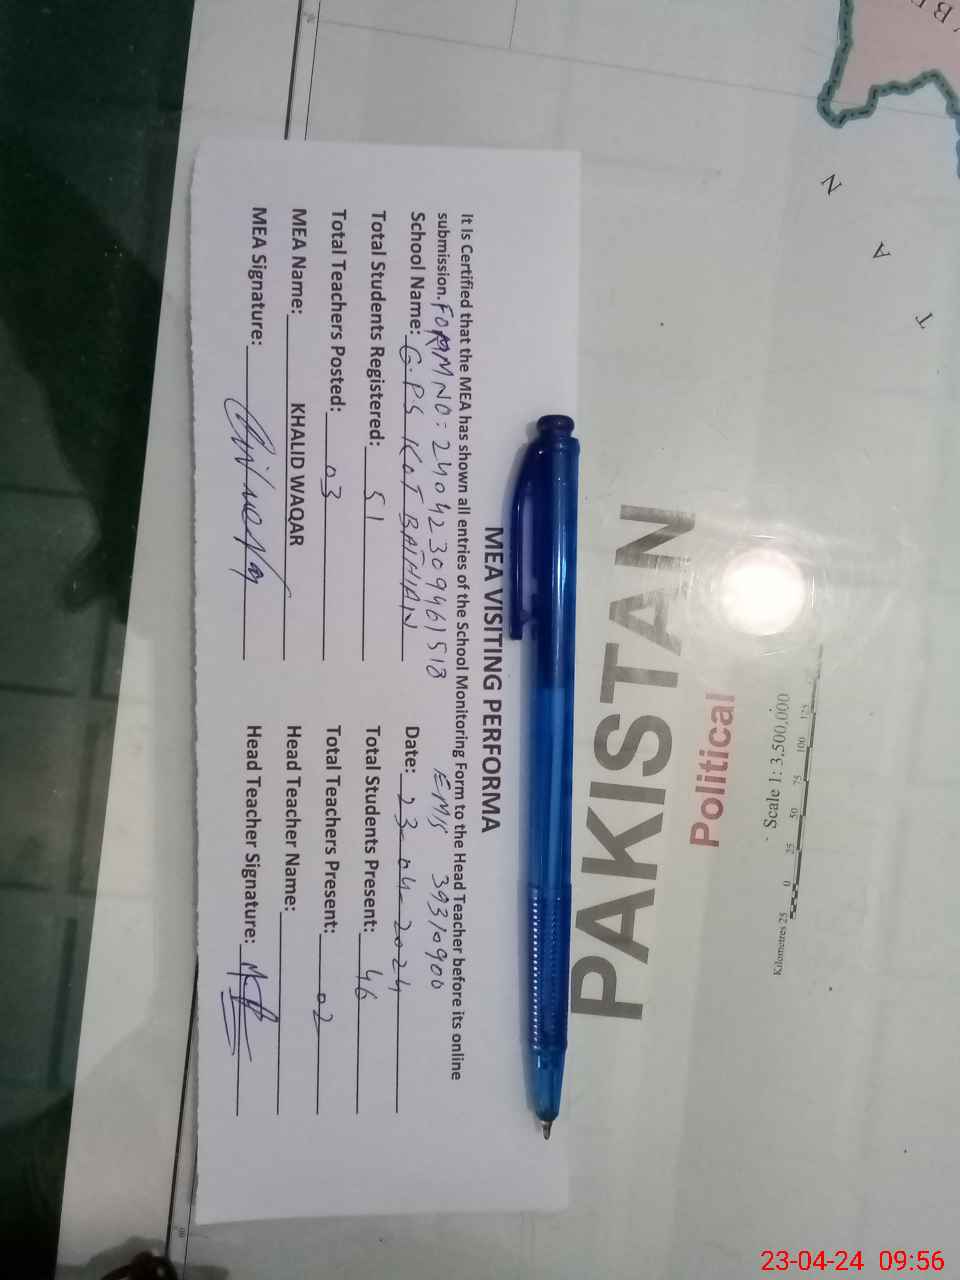 MEA VISITING PERFORMA
It Is Certified that the MEA has shown all entries of the School Monitoring Form to the Head Teacher before its online
submission. FORM NO: 24042309461518 EMIS 39310900
School Name: G.PS KOT BATHIAN Date: 23-04-2024
Total Students Registered: 51 Total Students Present: 46
Total Teachers Posted: 03 Total Teachers Present: 02
MEA Name: KHALID WAQAR Head Teacher Name:
MEA Signature: Head Teacher Signature:
PAKISTAN
Political
Scale 1: 3,500,000
Kilometres 25 0 25 50 75 100 125
N
A
T
23-04-24 09:56